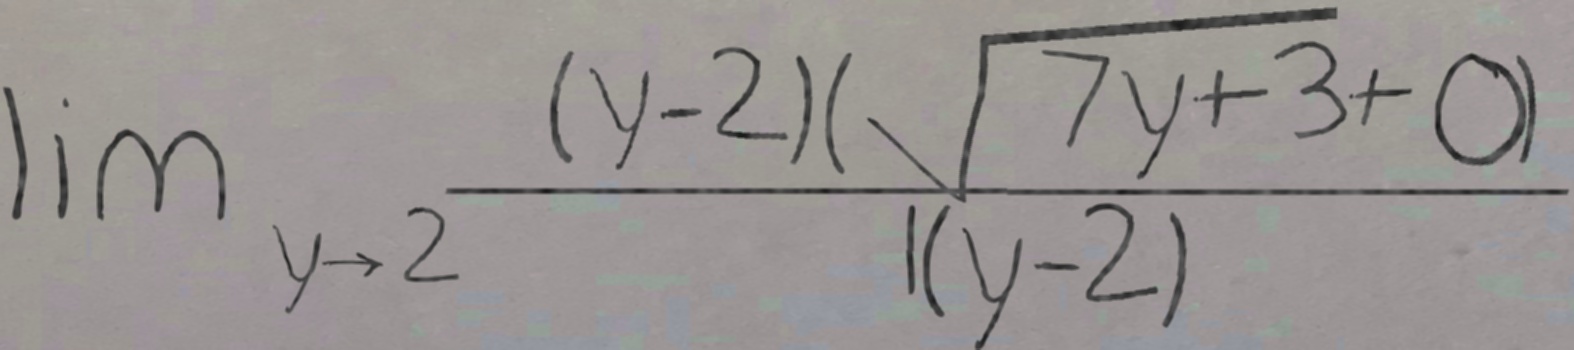 \lim_{y \to 2} \frac{(y-2)(\sqrt{7y+3}+0)}{1(y-2)}